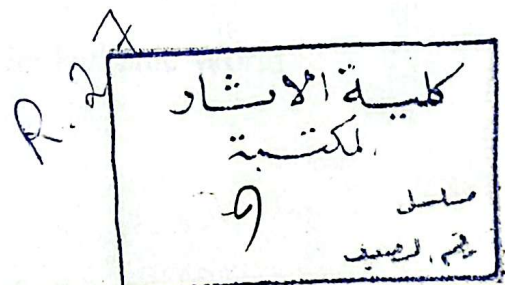 R. 2
كلية الاثار
المكتبة
9
مسلسل
رقم الرصيد